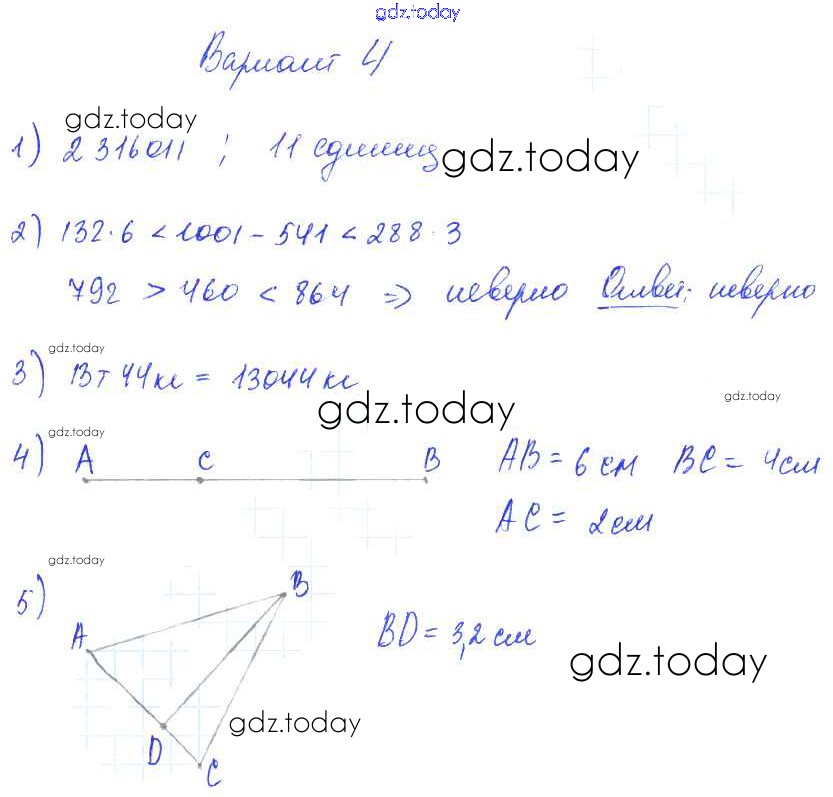 gdz.today
Вариант 4
gdz.today
1) 2 316 011 ; 11 единиц gdz.today
2) 132·6 < 1001 - 541 < 288·3
792 > 460 < 864 => неверно Ответ: неверно
gdz.today
3) 13т 44кг = 13044кг
gdz.today gdz.today
gdz.today
4) A C B AB = 6 см BC = 4см
AC = 2см
gdz.today
5) B
A BD = 3,2 см
gdz.today
gdz.today
D C